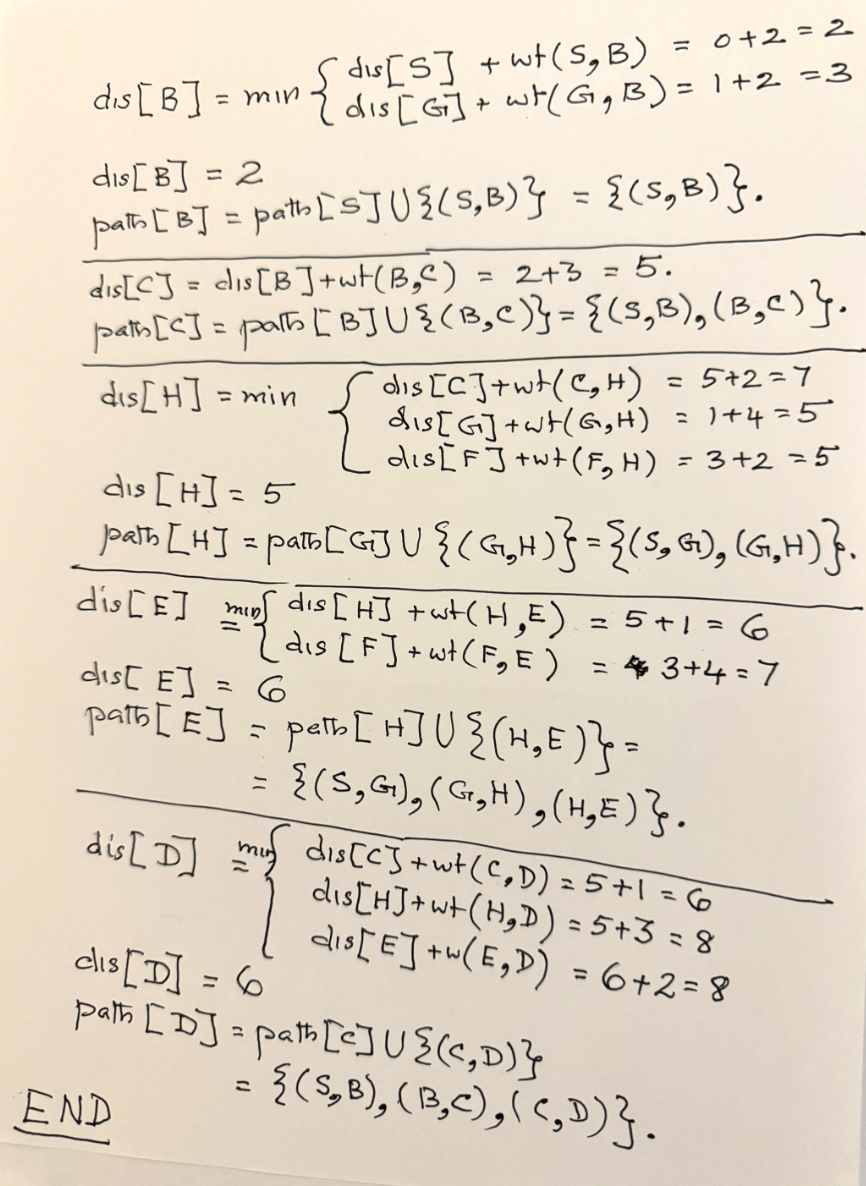 dis[B] = min { dis[S] + wt(S,B) = 0+2 = 2
dis[G] + wt(G,B) = 1+2 = 3
dis[B] = 2
path[B] = path[S] ∪ {(S,B)} = {(S,B)}.
dis[C] = dis[B]+wt(B,C) = 2+3 = 5.
path[C] = path[B] ∪ {(B,C)} = {(S,B), (B,C)}.
dis[H] = min { dis[C]+wt(C,H) = 5+2=7
dis[G]+wt(G,H) = 1+4=5
dis[F]+wt(F,H) = 3+2=5
dis[H] = 5
path[H] = path[G] ∪ {(G,H)} = {(S,G), (G,H)}.
dis[E] = min { dis[H] + wt(H,E) = 5+1 = 6
dis[F] + wt(F,E) = 3+4=7
dis[E] = 6
path[E] = path[H] ∪ {(H,E)} =
= {(S,G), (G,H), (H,E)}.
dis[D] = min { dis[C]+wt(C,D) = 5+1 = 6
dis[H]+wt(H,D) = 5+3 = 8
dis[E]+w(E,D) = 6+2=8
dis[D] = 6
path[D] = path[C] ∪ {(C,D)}
= {(S,B), (B,C), (C,D)}.
END